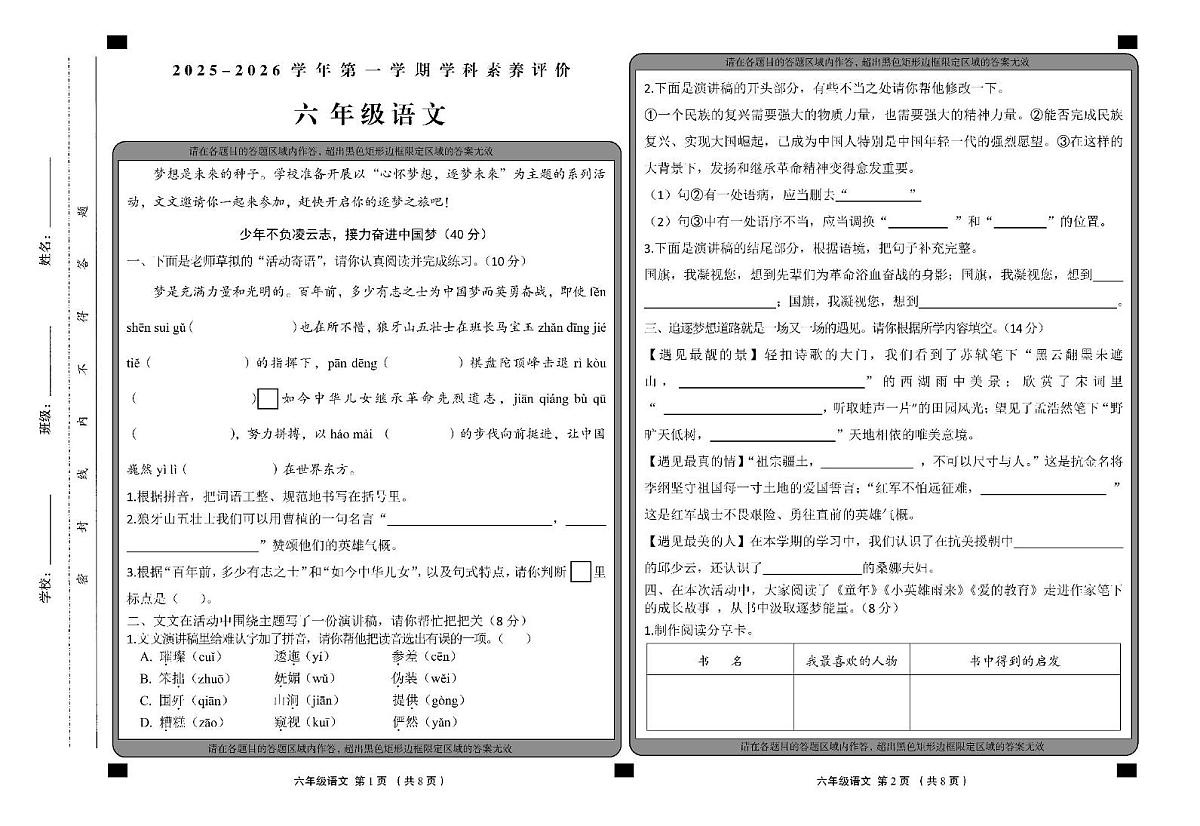 2025-2026 学年第一学期学科素养评价
六 年级语文
请在各题目的答题区域内作答，超出黑色矩形边框限定区域的答案无效
梦想是未来的种子。学校准备开展以“心怀梦想，逐梦未来”为主题的系列活
动，文文邀请你一起来参加，赶快开启你的逐梦之旅吧！
少年不负凌云志，接力奋进中国梦（40 分）
一、下面是老师草拟的“活动寄语”，请你认真阅读并完成练习。（10 分）
梦是充满力量和光明的。百年前，多少有志之士为中国梦而英勇奋战，即使 fěn
shēn suì gǔ（ ）也在所不惜，狼牙山五壮士在班长马宝玉 zhǎn dīng jié
tiě（ ）的指挥下，pān dēng（ ）棋盘陀顶峰击退 rì kòu
（ ）□如今中华儿女继承革命先烈遗志，jiān qiáng bù qū
（ ），努力拼搏，以 háo mài （ ）的步伐向前挺进，让中国
巍然 yì lì（ ）在世界东方。
1.根据拼音，把词语工整、规范地书写在括号里。
2.狼牙山五壮士我们可以用曹植的一句名言“____________，______
____________”赞颂他们的英雄气概。
3.根据“百年前，多少有志之士”和“如今中华儿女”，以及句式特点，请你判断□里
标点是（ ）。
二、文文在活动中围绕主题写了一份演讲稿，请你帮忙把把关（8 分）
1.文文演讲稿里给难认字加了拼音，请你帮他把读音选出有误的一项。（ ）
A. 璀璨（cuǐ） 逶迤（yí） 参差（cēn）
B. 笨拙（zhuō） 妩媚（wǔ） 伪装（wěi）
C. 国歼（qiān） 山涧（jiān） 提供（gòng）
D. 糟糕（zāo） 窥视（kuī） 俨然（yǎn）
请在各题目的答题区域内作答，超出黑色矩形边框限定区域的答案无效
六年级语文 第 1 页 （共 8 页）
姓名：
班级：
学校：
密 封 线 内 不 得 答 题
请在各题目的答题区域内作答，超出黑色矩形边框限定区域的答案无效
2.下面是演讲稿的开头部分，有些不当之处请你帮他修改一下。
①一个民族的复兴需要强大的物质力量，也需要强大的精神力量。②能否完成民族
复兴、实现大国崛起，已成为中国人特别是中国年轻一代的强烈愿望。③在这样的
大背景下，发扬和继承革命精神变得愈发重要。
（1）句②有一处语病，应当删去“ ”
（2）句③中有一处语序不当，应当调换“________ ”和“______”的位置。
3.下面是演讲稿的结尾部分，根据语境，把句子补充完整。
国旗，我凝视您，想到先辈们为革命浴血奋战的身影；国旗，我凝视您，想到____
____________；国旗，我凝视您，想到____________。
三、追逐梦想道路就是一场又一场的遇见。请你根据所学内容填空。（14 分）
【遇见最靓的景】轻扣诗歌的大门，我们看到了苏轼笔下“黑云翻墨未遮
山，____________”的西湖雨中美景；欣赏了宋词里
“____________，听取蛙声一片”的田园风光；望见了孟浩然笔下“野
旷天低树，____________”天地相依的唯美意境。
【遇见最真的情】“祖宗疆土，____________，不可以尺寸与人。”这是抗金名将
李纲坚守祖国每一寸土地的爱国誓言；“红军不怕远征难，____________ ”
这是红军战士不畏艰险、勇往直前的英雄气概。
【遇见最美的人】在本学期的学习中，我们认识了在抗美援朝中____________
的邱少云，还认识了____________的桑娜夫妇。
四、在本次活动中，大家阅读了《童年》《小英雄雨来》《爱的教育》走进作家笔下
的成长故事 ，从书中汲取逐梦能量。（8 分）
1.制作阅读分享卡。
书 名 我最喜欢的人物 书中得到的启发
请在各题目的答题区域内作答，超出黑色矩形边框限定区域的答案无效
六年级语文 第 2 页 （共 8 页）